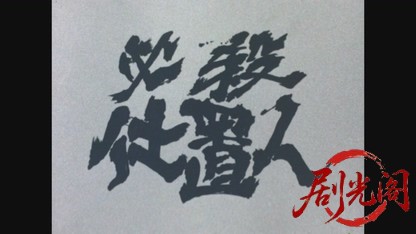 必殺
仕置人
剧光阁